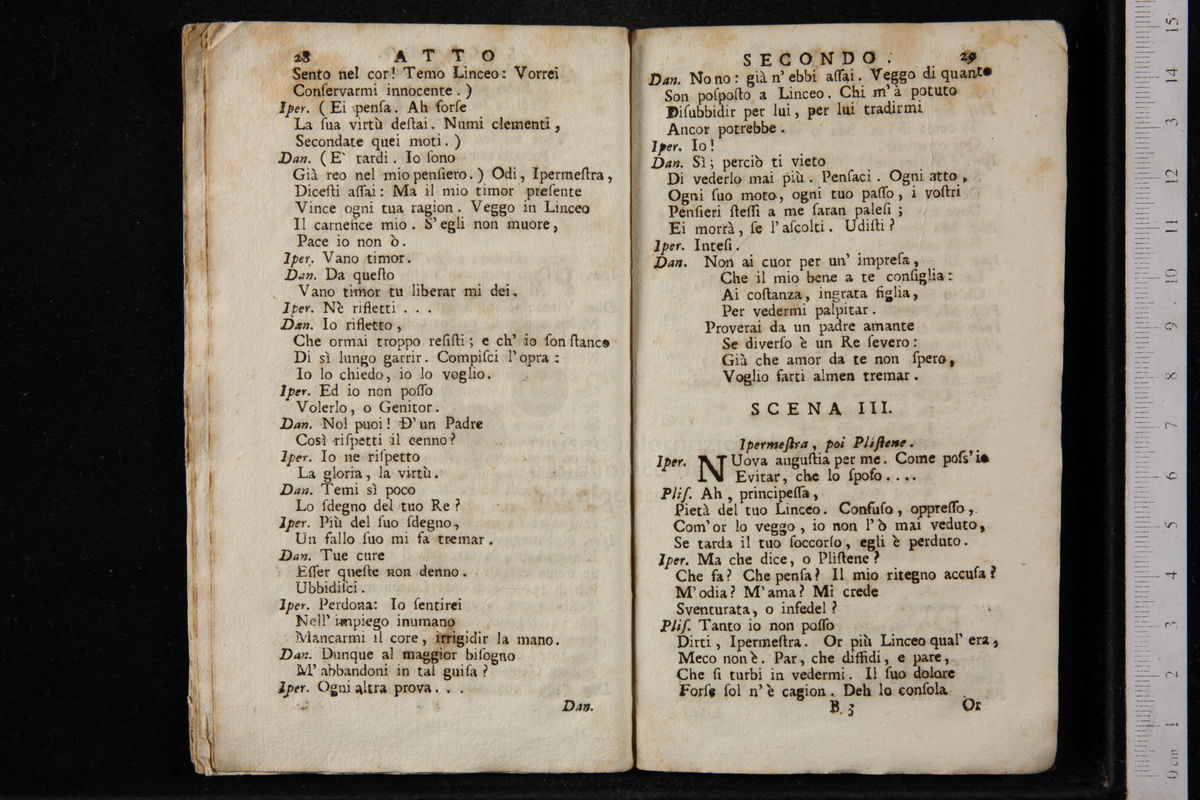 28 ATTO
Sento nel cor! Temo Linceo: Vorrei
Conſervarmi innocente. )
Iper. ( Ei penſa. Ah forſe
La ſua virtù deſtai. Numi clementi,
Secondate quei moti. )
Dan. ( E` tardi. Io ſono
Già reo nel mio penſiero. ) Odi, Ipermeſtra,
Diceſti aſſai: Ma il mio timor preſente
Vince ogni tua ragion. Veggo in Linceo
Il carnefice mio. S'egli non muore,
Pace io non ò.
Iper. Vano timor.
Dan. Da queſto
Vano timor tu liberar mi dei.
Iper. Nè rifletti . . .
Dan. Io rifletto,
Che ormai troppo reſiſti; e ch' io ſon ſtanco
Di sì lungo garrir. Compiſci l'opra:
Io lo chiedo, io lo voglio.
Iper. Ed io non poſſo
Volerlo, o Genitor.
Dan. Nol puoi! D'un Padre
Così riſpetti il cenno?
Iper. Io ne riſpetto
La gloria, la virtù.
Dan. Temi sì poco
Lo ſdegno del tuo Re?
Iper. Più del ſuo ſdegno,
Un fallo ſuo mi fa tremar.
Dan. Tue cure
Eſſer queſte non denno.
Ubbidiſci.
Iper. Perdona: Io ſentirei
Nell' impiego inumano
Mancarmi il core, irrigidir la mano.
Dan. Dunque al maggior biſogno
M' abbandoni in tal guiſa?
Iper. Ogni altra prova. . .
Dan.
SECONDO. 29
Dan. No no: già n'ebbi aſſai. Veggo di quanto
Son poſpoſto a Linceo. Chi m'à potuto
Diſubbidir per lui, per lui tradirmi
Ancor potrebbe.
Iper. Io!
Dan. Sì; perciò ti vieto
Di vederlo mai più. Penſaci. Ogni atto,
Ogni ſuo moto, ogni tuo paſſo, i voſtri
Penſieri ſteſſi a me ſaran paleſi;
Ei morrà, ſe l'aſcolti. Udiſti?
Iper. Inteſi.
Dan. Non ai cuor per un' impreſa,
Che il mio bene a te conſiglia:
Ai coſtanza, ingrata figlia,
Per vedermi palpitar.
Proverai da un padre amante
Se diverſo è un Re ſevero:
Già che amor da te non ſpero,
Voglio farti almen tremar.
SCENA III.
Ipermeſtra, poi Pliſtene.
Iper. NUova anguſtia per me. Come poſs'io
Evitar, che lo ſpoſo....
Pliſ. Ah, principeſſa,
Pietà del tuo Linceo. Confuſo, oppreſſo,
Com'or lo veggo, io non l'ò mai veduto,
Se tarda il tuo ſoccorſo, egli è perduto.
Iper. Ma che dice, o Pliſtene?
Che fa? Che penſa? Il mio ritegno accuſa?
M'odia? M'ama? Mi crede
Sventurata, o infedel?
Pliſ. Tanto io non poſſo
Dirti, Ipermeſtra. Or più Linceo qual' era,
Meco non è. Par, che diffidi, e pare,
Che ſi turbi in vedermi. Il ſuo dolore
Forſe ſol n'è cagion. Deh lo conſola
B 3 Or